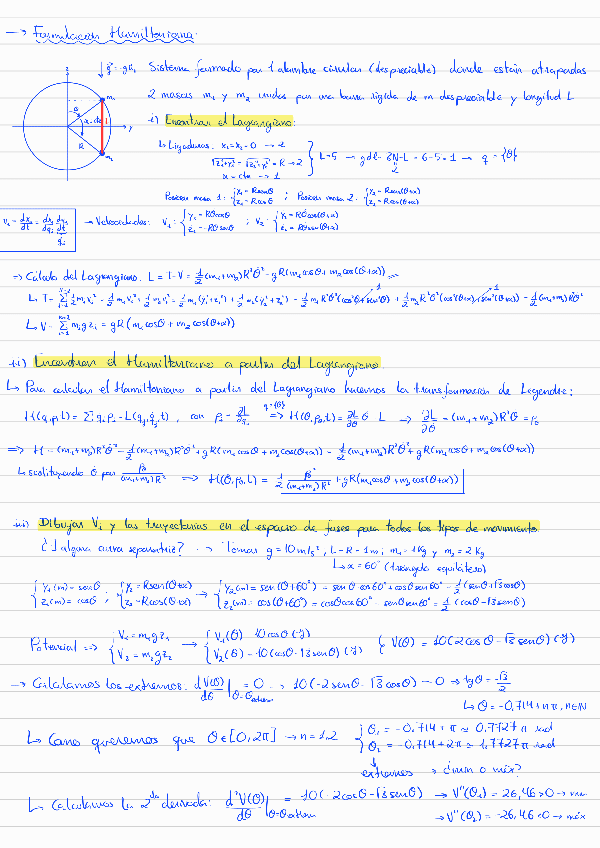 → Formulación Hamiltoniana.
z
↓ g⃗ = -g û₂
Sistema formado por 1 alambre circular (despreciable) donde están atrapadas
2 masas m₁ y m₂ unidas por una barra rígida de m despreciable y longitud L
m₁
θ
α = cte
y
R
m₂
i) Encontrar el Lagrangiano:
↳ Ligaduras: x₁ = x₂ = 0 → 2
√(z₁²+y₁²) = √(z₂²+y₂²) = R → 2
α = cte → 1
} L = 5 → gdl = 3N - L = 6 - 5 = 1 → q = {θ}
2
Posición masa 1: { y₁ = R senθ ; z₁ = R cosθ ; Posición masa 2: { y₂ = R sen(θ+α) ; z₂ = R cos(θ+α)
vᵢ = dxᵢ/dt = dxᵢ/dqⱼ dqⱼ/dt
q̇ⱼ
→ Velocidades: V₁ = { ẏ₁ = Rθ̇ cosθ ; ż₁ = -Rθ̇ senθ ; V₂ = { ẏ₂ = Rθ̇ cos(θ+α) ; ż₂ = -Rθ̇ sen(θ+α)
⇒ Cálculo del Lagrangiano: L = T - V = 1/2 (m₁+m₂) R²θ̇² - gR(m₁ cosθ + m₂ cos(θ+α))
↳ T = Σ 1/2 mᵢ vᵢ² = 1/2 m₁v₁² + 1/2 m₂v₂² = 1/2 m₁(ẏ₁²+ż₁²) + 1/2 m₂(ẏ₂²+ż₂²) = 1/2 m₁R²θ̇²(cos²θ+sen²θ) + 1/2 m₂R²θ̇²(cos²(θ+α)+sen²(θ+α)) = 1/2 (m₁+m₂)R²θ̇²
↳ V = Σ mᵢ g zᵢ = gR(m₁ cosθ + m₂ cos(θ+α))
ii) Encontrar el Hamiltoniano a partir del Lagrangiano.
↳ Para calcular el Hamiltoniano a partir del Lagrangiano hacemos la transformación de Legendre:
H(q,p,t) = Σ q̇ⱼ pⱼ - L(q,q̇,t), con pⱼ = ∂L/∂q̇ⱼ q={θ} ⇒ H(θ,p_θ,t) = ∂L/∂θ̇ θ̇ - L → ∂L/∂θ̇ = (m₁+m₂)R²θ̇ = p_θ
⇒ H = (m₁+m₂)R²θ̇² - 1/2 (m₁+m₂)R²θ̇² + gR(m₁ cosθ + m₂ cos(θ+α)) = 1/2 (m₁+m₂)R²θ̇² + gR(m₁ cosθ + m₂ cos(θ+α))
↳ sustituyendo θ̇ por p_θ/((m₁+m₂)R²) ⇒ H(θ,p_θ,t) = 1/2 p_θ²/((m₁+m₂)R²) + gR(m₁ cosθ + m₂ cos(θ+α))
iii) Dibujar V, y las trayectorias en el espacio de fases para todos los tipos de movimiento.
¿Alguna curva separatriz? → Tomar g = 10 m/s², L = R = 1m; m₁ = 1 Kg y m₂ = 2 Kg
↳ α = 60° (triángulo equilátero)
{ y₁(m) = senθ ; z₁(m) = cosθ ; { y₂ = R sen(θ+α) ; z₂ = R cos(θ+α) → { y₂(m) = sen(θ+60°) = senθ cos60° + cosθ sen60° = 1/2 (senθ + √3 cosθ)
z₂(m) = cos(θ+60°) = cosθ cos60° - senθ sen60° = 1/2 (cosθ - √3 senθ)
Potencial ⇒ { V₁ = m₁ g z₁ ; V₂ = m₂ g z₂ → { V₁(θ) = 10 cosθ (J) ; V₂(θ) = 10(cosθ - √3 senθ) (J) { V(θ) = 10(2cosθ - √3 senθ) (J)
→ Calculamos los extremos: dV(θ)/dθ |θ=θextrem = 0 → 10(-2senθ - √3 cosθ) = 0 ⇒ tgθ = -√3/2
↳ θ = -0,714 + nπ, n∈N
↳ Como queremos que θ∈[0,2π] → n = 1,2 { θ₁ = -0,714 + π ≈ 0,7727π rad
θ₂ = -0,714 + 2π ≈ 1,7727π rad
extremos → ¿mín o máx?
↳ Calculamos la 2ᵈᵃ derivada: d²V(θ)/dθ |θ=θextrem = 10(-2cosθ + √3 senθ) → V''(θ₁) = 26,46 > 0 → mín
→ V''(θ₂) = -26,46 < 0 → máx